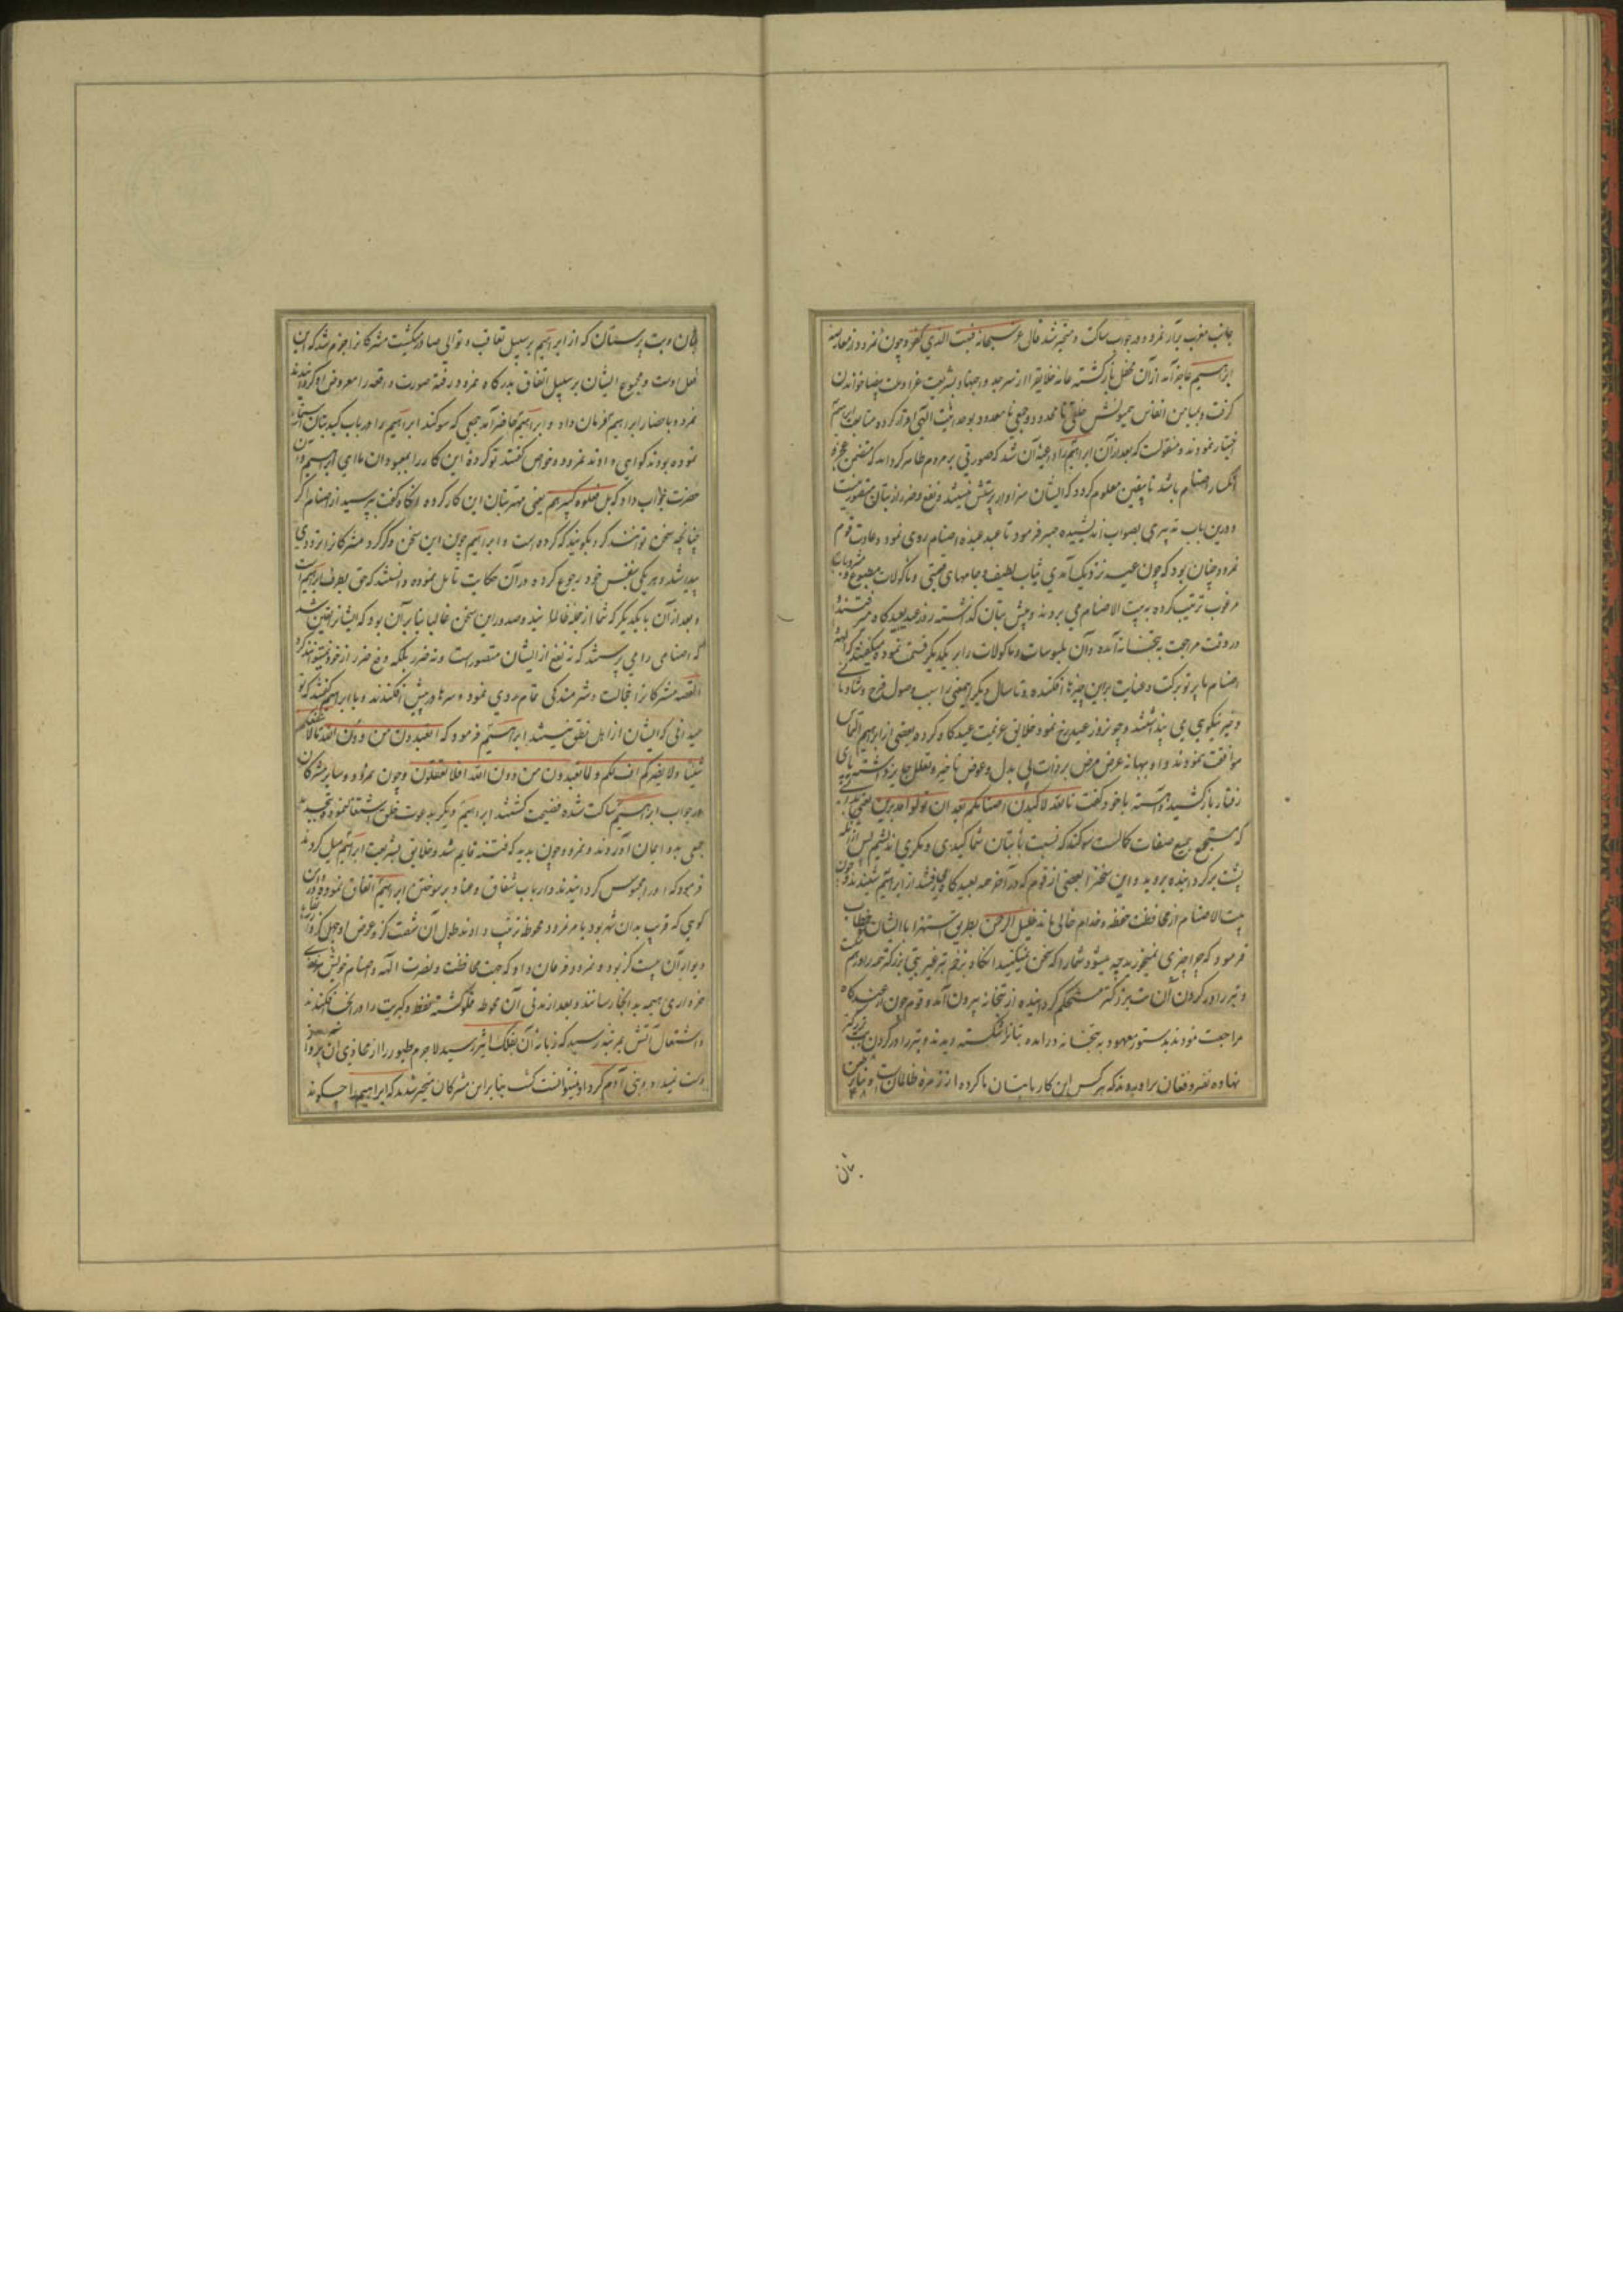 جانب مغرب برآر نمرود در جواب ساکت و متحیر شد قال عز سبحانه فبهت الذی کفر و چون نمرود از معارضه
ابراهیم عاجز آمد از آن محفل بازگشته خلایق را از سر جد و جهد بشریعت غرا و ملت بیضا خواندن
گرفت و بمیامن انفاس همیونش خلقی نامحدود و جمعی نامعدود بوحدانیت الهی اقرار کرده متابعت ابراهیم
اختیار نمودند و منقولست که بعد از آن ابراهیم را داعیه آن شد که صورتی بر مردم ظاهر گرداند که متضمن عجز و
انکسار اصنام باشد تا بیقین معلوم گردد که ایشان سزاوار پرستش نیستند و نفع و ضرر از بتان متصور نیست
و درین باب تدبیری بصواب اندیشیده صبر فرمود تا عید عبده اصنام روی نمود و عادت قوم
نمرود چنان بود که چون عید نزدیک آمدی ثیاب لطیف و جامهای قیمتی و ماکولات مطبوع و مشروبات
مرغوب ترتیب کرده به بیت الاصنام می بردند و پیش بتان گذاشته روز عید بعیدگاه میرفتند و
در وقت مراجعت به بتخانه آمده آن ملبوسات و ماکولات را بر یکدیگر قسمت نموده میگفتند که الهه
اصنام ما پرتو برکت و عنایت برین چیزها افکنده و تا سال دیگر این معنی را سبب وصول فرح و شادمانی
و خیر نیکویی می پنداشتند و چون روز عید رخ نمود خلایق عزیمت عیدگاه کرده بعضی از ابراهیم التماس
موافقت نمودند و او بهانه عرض مرض بر ذات بی بدل و عوض تاخیر و تعلل جایز داشته پای
رفتار باز کشید و آهسته با خود گفت تالله لاکیدن اصنامکم بعد ان تولوا مدبرین یعنی بخدایی
که مستجمع جمیع صفات کمالست سوگند که نسبت با بتان شما کیدی و مکری اندیشم پس از آنکه
پشت برگردانیده بروید و این سخن را بعضی از قوم که در آخر همه بعیدگاه میرفتند از ابراهیم شنیدند و چون
بیت الاصنام از محافظت حفظه و خدام خالی ماند خلیل الرحمن بطریق استهزا با ایشان خطاب
فرمود که چرا چیزی نمیخورید چه میشود شما را که سخن نمیکنید آنگاه بزخم تبر غیر بتی بزرگتر همه را درهم شکست
و تبر را در گردن آن بت بزرگتر مستحکم گردانیده از بتخانه بیرون آمد و قوم چون از عیدگاه
مراجعت نمودند بدستور معهود به بتخانه درآمده بتان را شکسته دیدند و تبر را در گردن بت بزرگتر
نهاده نفیر و فغان برآوردند که هر کس این کار با بتان ما کرده از زمره ظالمان است و بنابر سخن
بتان
بتان و بت پرستان که از ابراهیم بر سبیل تعاقب و توالی صادر میگشت مشرکان را جزم شد که این
فعل اوست و مجموع ایشان بر سبیل اتفاق بدرگاه نمرود رفته صورت واقعه را معروض او گردانیدند
نمرود باحضار ابراهیم فرمان داد و ابراهیم حاضر آمد جمعی که سوگند ابراهیم را در باب کید بتان استماع
نموده بودند گواهی دادند نمرود و خواص گفتند تو کرده این کار را بمعبودان ما ای ابراهیم آن
حضرت جواب داد که بل فعله کبیرهم یعنی مهتر بتان این کار کرده آنگاه گفت بپرسید از اصنام اگر
چنانچه سخن توانند کرد بگویند که که کرده است و ابراهیم چون این سخن ذکر کرد مشرکان را تردی
پیدا شد و هر یکی بنفس خود رجوع کرده در آن حکایت تامل نموده دانستند که حق بطرف ابراهیم است
و بعد از آن با یکدیگر که شما از جمله ظالمانید و صدور این سخن غالبا بنا بر آن بود که ایشان را یقین شد
که اصنامی را می پرستند که نه نفع از ایشان متصورست و نه ضرر بلکه دفع ضرر از خود نمیتوانند کرد
القصه مشرکان را خجالت و شرمندگی تمام روی نمود و سرها در پیش افکندند و با ابراهیم گفتند که تو
میدانی که ایشان از اهل نطق نیستند ابراهیم فرمود که افتعبدون من دون الله مالا ینفعکم
شیئا ولا یضرکم اف لکم و لما تعبدون من دون الله افلا تعقلون و چون نمرود و سایر مشرکان
در جواب ابراهیم ساکت شده فضیحت گشتند ابراهیم دیگر بدعوت خلق اشتغال نمود و تجدید
جمعی بدو ایمان آوردند و نمرود چون بدید که فتنه قایم شد و خلایق بشریعت ابراهیم میل کردند
فرمود که او را محبوس گردانیدند و ارباب شقاق و عناد بر سوختن ابراهیم اتفاق نموده در
کوهی که قریب بدان شهر بود بامر نمرود محوطه ترتیب دادند طول آن شصت گز و عرض او چهل گز و ارتفاع
دیوار آن بیست گز بود و نمرود فرمان داد که جهت محافظت و نصرت الهه و اصنام خویش
خرواری هیمه بدانجا رسانند و بعد از مدتی آن محوطه مملو گشته نفط و کبریت را در آنجا افکندند
و اشتعال آتش بمرتبه رسید که زبانه آن بفلک اثیر رسید لاجرم طیور را از محاذی آن پرواز
دست نمیداد و بنی آدم گرد او نمیتوانست گشت بنا بر این مشرکان متحیر شدند که ابراهیم را چگونه